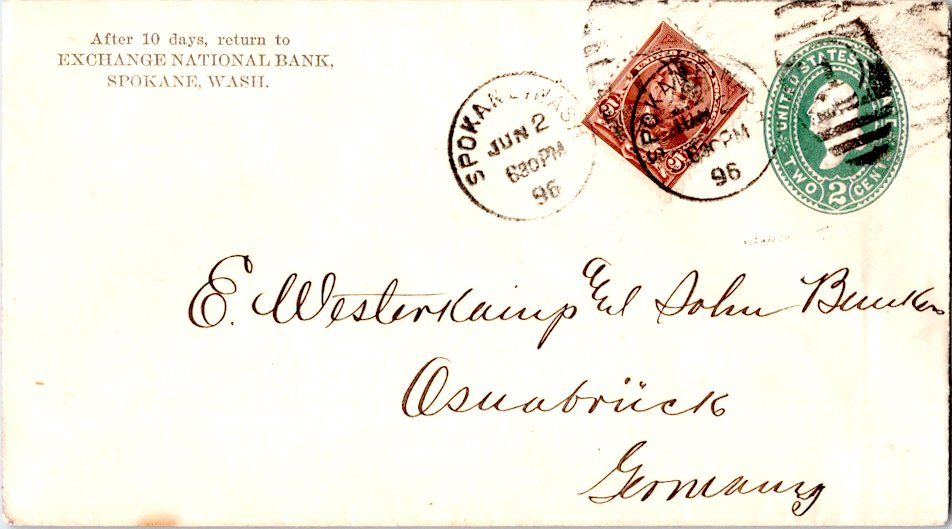 After 10 days, return to
EXCHANGE NATIONAL BANK,
SPOKANE, WASH.
SPOKANE, WASH.
JUN 2
630PM
96
SPOKANE
JUN
630PM
96
UNITED STATES
TWO 2 CENTS
E. Westerkamp and John
Osnabrück
Germany